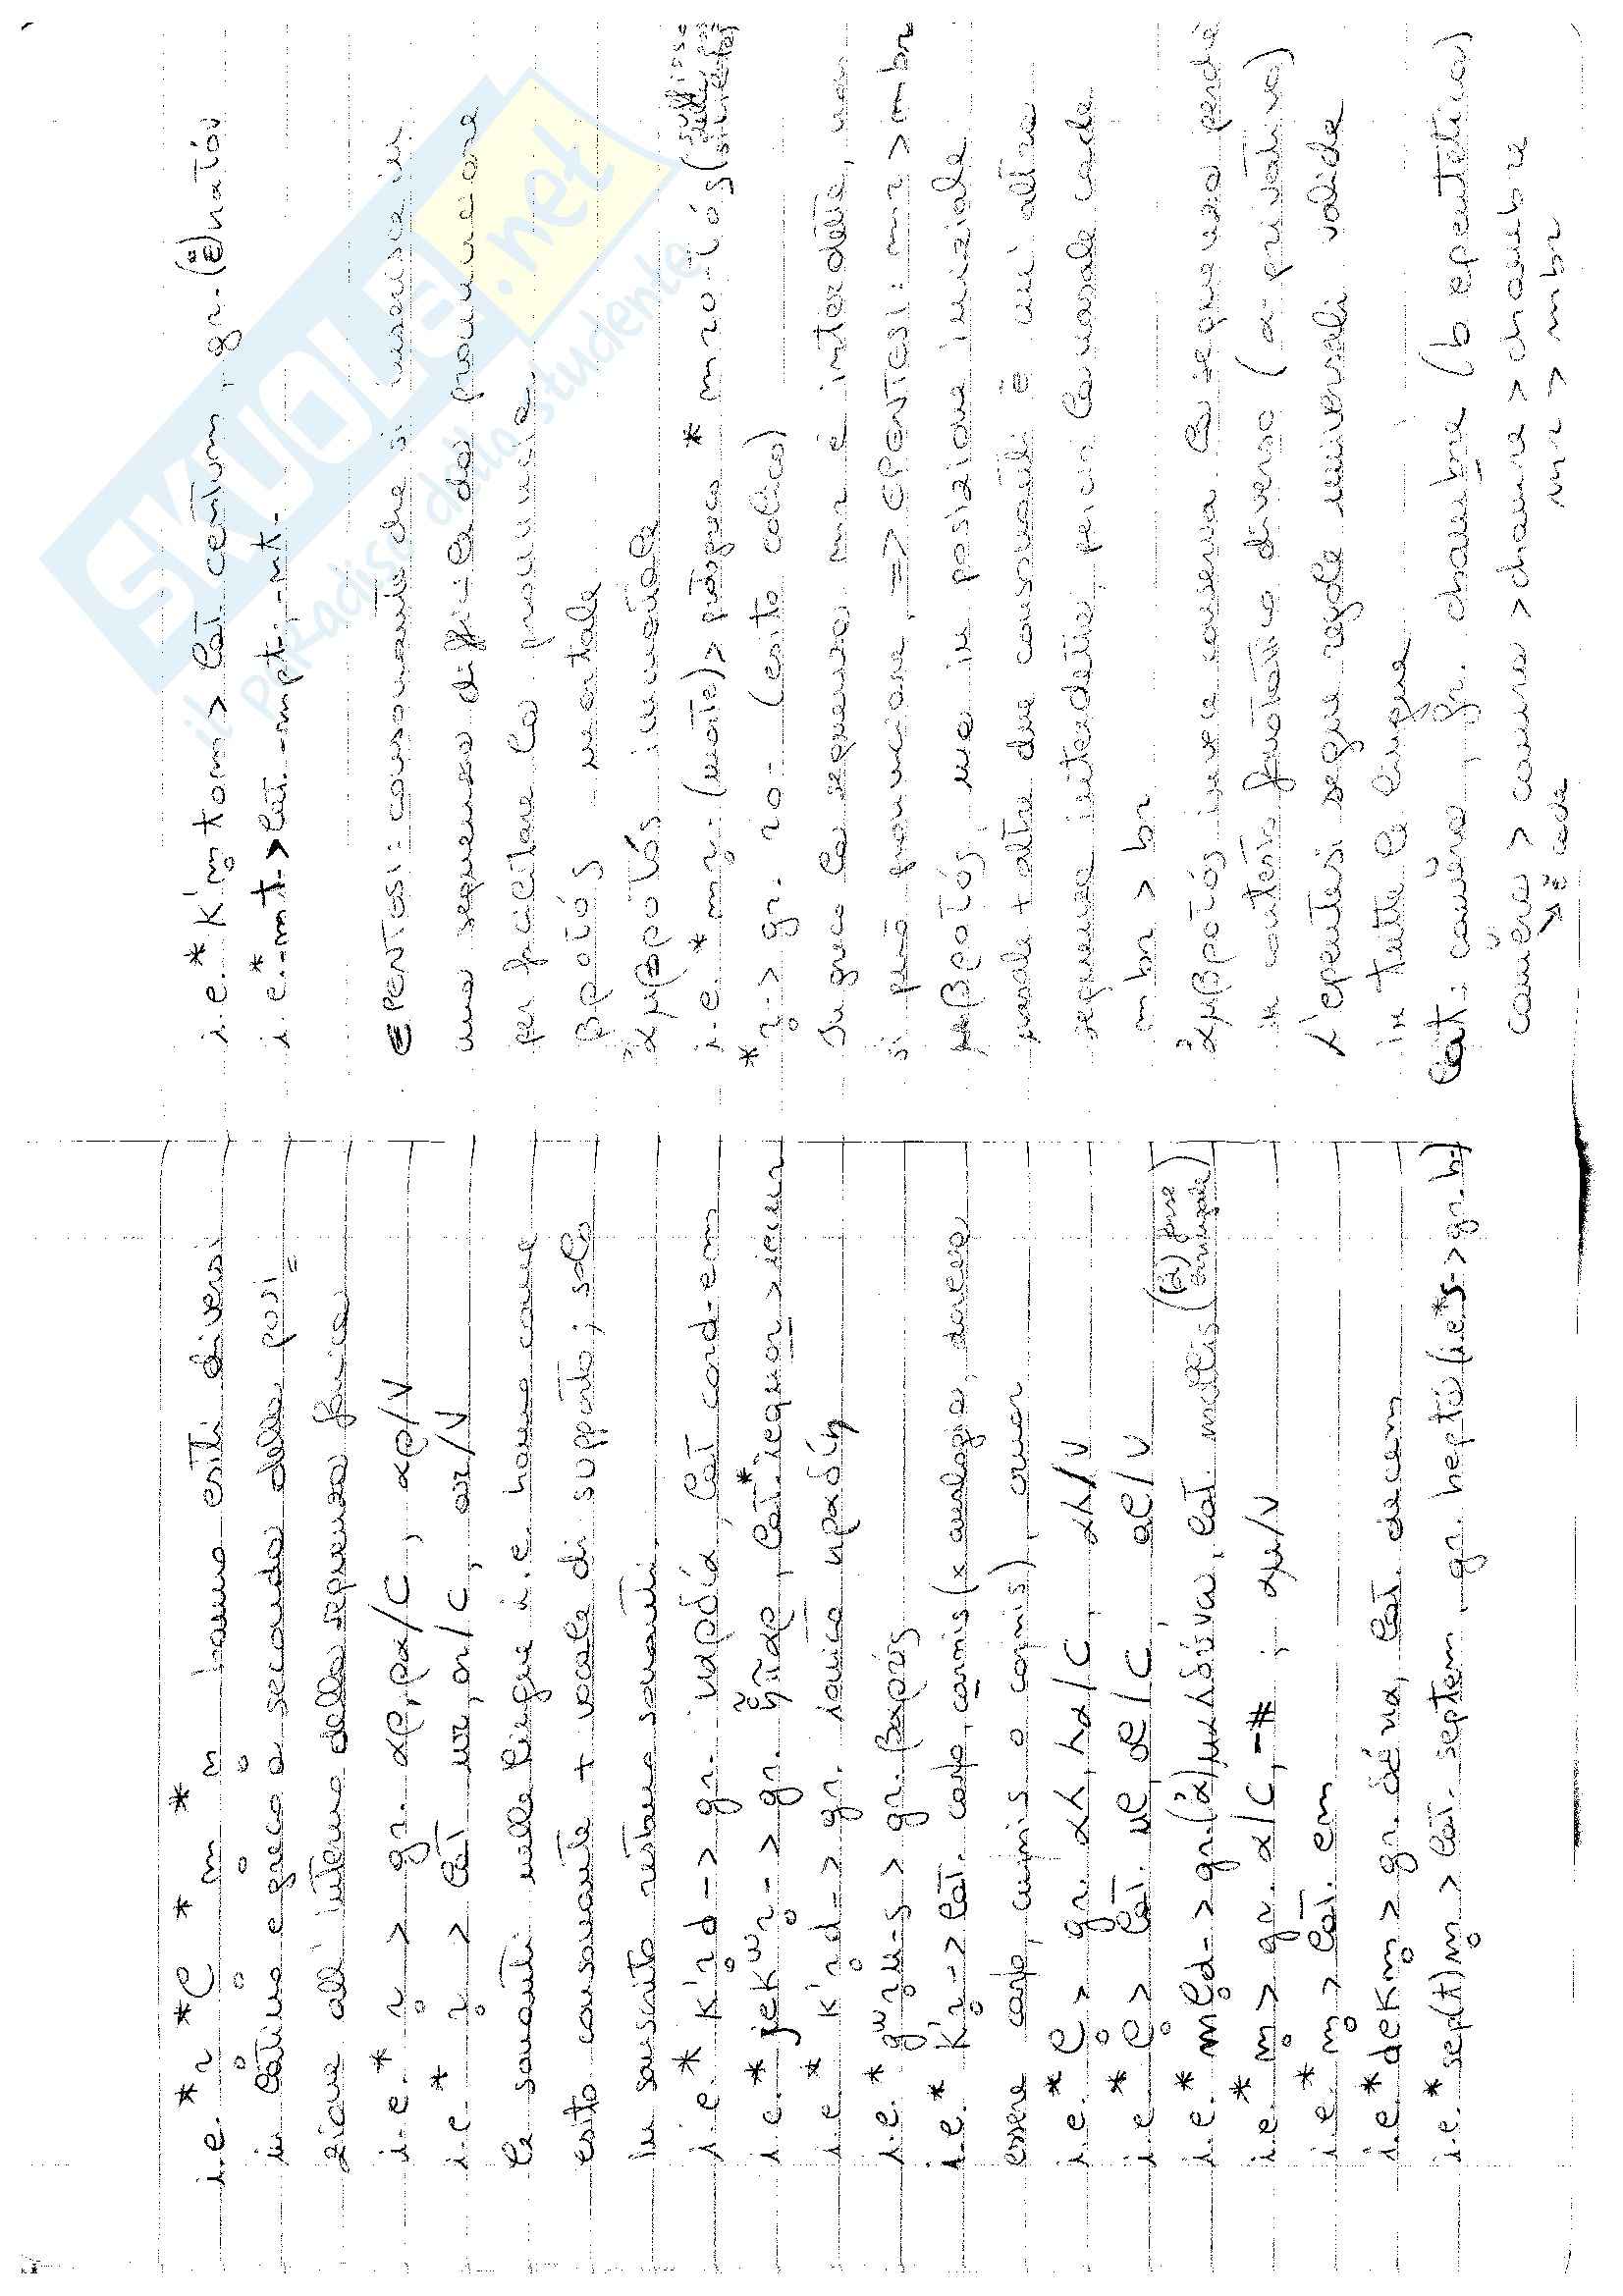 i.e. *r̥ *l̥ *m̥ *n̥ hanno esiti diversi
in latino e greco a seconda della posi=
zione all'interno della sequenza fonica
i.e. *r̥ > gr. αρ, ρα/C, αρ/V
i.e. *r̥ > lat ur, or/C, ar/V
le sonanti nelle lingue i.e hanno come
esito consonante + vocale di supporto; solo
in sanscrito restano sonanti.
i.e. *k'r̥d- > gr. καρδία, lat cord-em
i.e. *jekʷr̥- > gr. ἧπαρ, lat. *iequor > iecur
i.e. *k'r̥d- > gr. ionico κραδίη
i.e. *gʷr̥u-s > gr. βαρύς
i.e. *k'r̥- > lat. caro, carnis (x analogia, doveva
essere caro, curnis o cornis), cruor
i.e. *l̥ > gr. αλ, λα/C, αλ/V
i.e. *l̥ > lat. ul, ol/C, al/V
i.e. *ml̥d- > gr. (ἀ)μαλδύνω, lat. mollis ((ἀ) forse originale)
i.e. *m̥ > gr. α/C, -# ; αμ/V
i.e. *m̥ > lat. em
i.e. *dekm̥ > gr. δέκα, lat. decem
i.e. *sep(t)m̥ > lat. septem, gr. heptá (i.e. *s- > gr. h-)
i.e. *k'm̥tom > lat centum, gr. (ἑ)κατόν
i.e. *-mt- > lat. -mpt-, -nt-
EPENTESI: consonante che si inserisce in
una sequenza difficile da pronunciare
per facilitare la pronuncia
βροτός - mortale
ἀμβροτός immortale
i.e. *mr̥- (morte) > protogreco *mro-tós (suffisso
*r̥- > gr. ro- (esito eolico)
In greco la sequenza mr è interdetta, non
si può pronunciare, => EPENTESI: mr > mbr
μβροτός, ma in posizione iniziale
nasale + altre due consonanti è un'altra
sequenza interdetta, perciò la nasale cade
mbr > br
ἀμβροτός invece conserva la sequenza perché
in contesto fonotattico diverso (α privativo)
L'epentesi segue regole universali valide
in tutte le lingue
lat. camĕra, fr. chambre (b epentetica)
camĕra > camra > chamre > chambre
↘ ĕ cade mr > mbr
SKUOLA.net
il paradiso dello studente